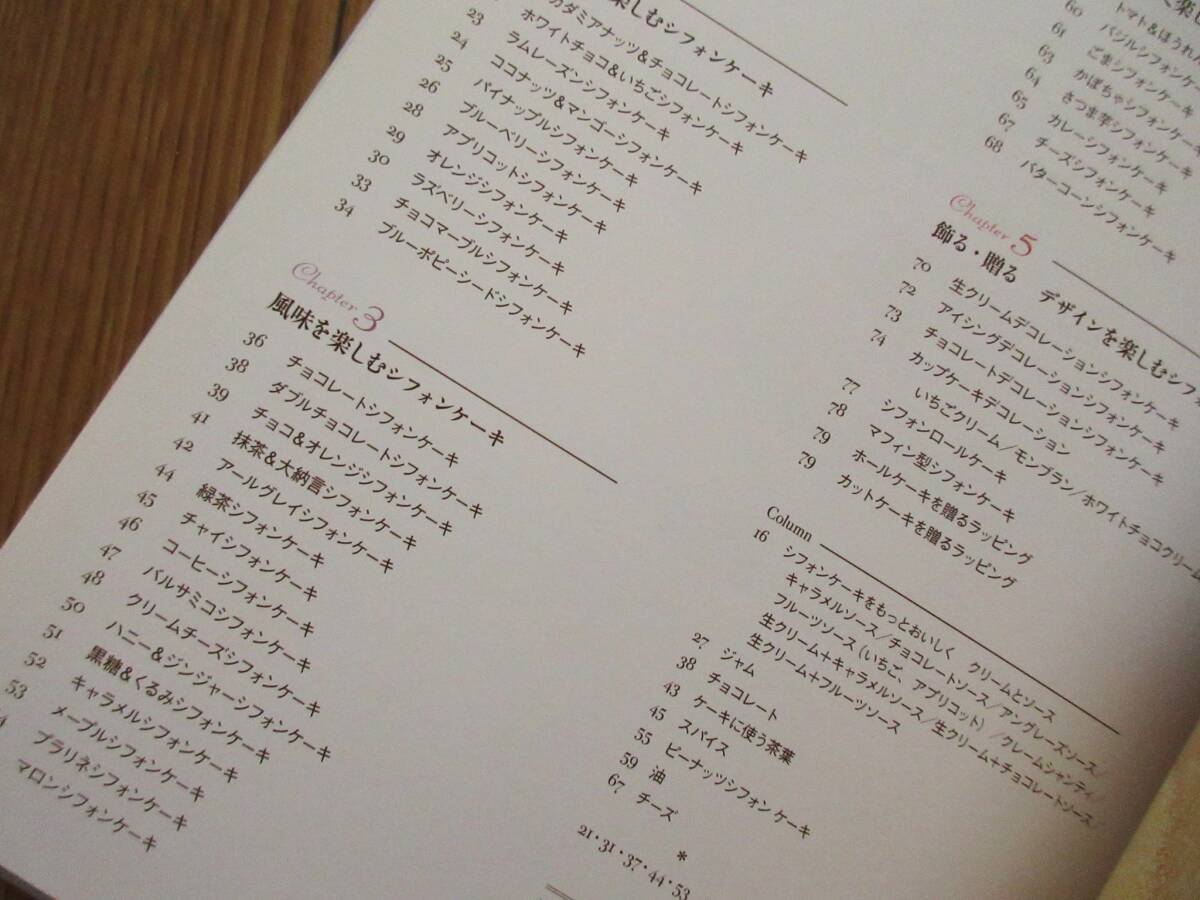 楽しむシフォンケーキ
カダミアナッツ&チョコレートシフォンケーキ
ホワイトチョコ&いちごシフォンケーキ
23 ラムレーズンシフォンケーキ
24 ココナッツ&マンゴーシフォンケーキ
25 パイナップルシフォンケーキ
26 ブルーベリーシフォンケーキ
28 アプリコットシフォンケーキ
29 オレンジシフォンケーキ
30 ラズベリーシフォンケーキ
33 チョコマーブルシフォンケーキ
34 ブルーポピーシードシフォンケーキ
Chapter 3
風味を楽しむシフォンケーキ
36 チョコレートシフォンケーキ
38 ダブルチョコレートシフォンケーキ
39 チョコ&オレンジシフォンケーキ
41 抹茶&大納言シフォンケーキ
42 アールグレイシフォンケーキ
44 緑茶シフォンケーキ
45 チャイシフォンケーキ
46 コーヒーシフォンケーキ
47 バルサミコシフォンケーキ
48 クリームチーズシフォンケーキ
50 ハニー&ジンジャーシフォンケーキ
51 黒糖&くるみシフォンケーキ
52 キャラメルシフォンケーキ
53 メープルシフォンケーキ
4 プラリネシフォンケーキ
マロンシフォンケーキ
トマト&ほうれ
60 バジルシフォンケー
61 ごまシフォンケーキ
63 かぼちゃシフォンケーキ
64 さつま芋シフォンケーキ
65 カレーシフォンケーキ
67 チーズシフォンケーキ
68 バターコーンシフォンケーキ
Chapter 5
飾る・贈る デザインを楽しむシフ
70 生クリームデコレーションシフォンケーキ
72 アイシングデコレーションシフォンケーキ
73 チョコレートデコレーションシフォンケーキ
74 カップケーキデコレーション
いちごクリーム/モンブラン/ホワイトチョコクリーム
77 シフォンロールケーキ
78 マフィン型シフォンケーキ
79 ホールケーキを贈るラッピング
79 カットケーキを贈るラッピング
Column
16 シフォンケーキをもっとおいしく クリームとソース
キャラメルソース/チョコレートソース/アングレーズソース/
フルーツソース(いちご、アプリコット)/クレームシャンティ/
生クリーム+キャラメルソース/生クリーム+チョコレートソース/
生クリーム+フルーツソース
27 ジャム
38 チョコレート
43 ケーキに使う茶葉
45 スパイス
55 ピーナッツシフォンケーキ
59 油
67 チーズ
*
21・31・37・44・53